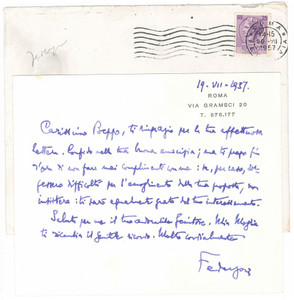 15
VII
1957
19-VII-1957.
ROMA
VIA GRAMSCI 20
T. 876.177
Carissimo Beppo, ti ringrazio per la tua affettuosa
lettera. Confido nella tua amicizia; ma ti prego fin
d'ora di non fare mai complimenti con me: se, per caso,
difficoltà per l'accoglimento della tua proposta, non
insistere: ti sarò egualmente grato del tuo interessamento.
Saluta per me il tuo Genitore. Mia Moglie
ti ricambia il gentile ricordo. Molto cordialmente